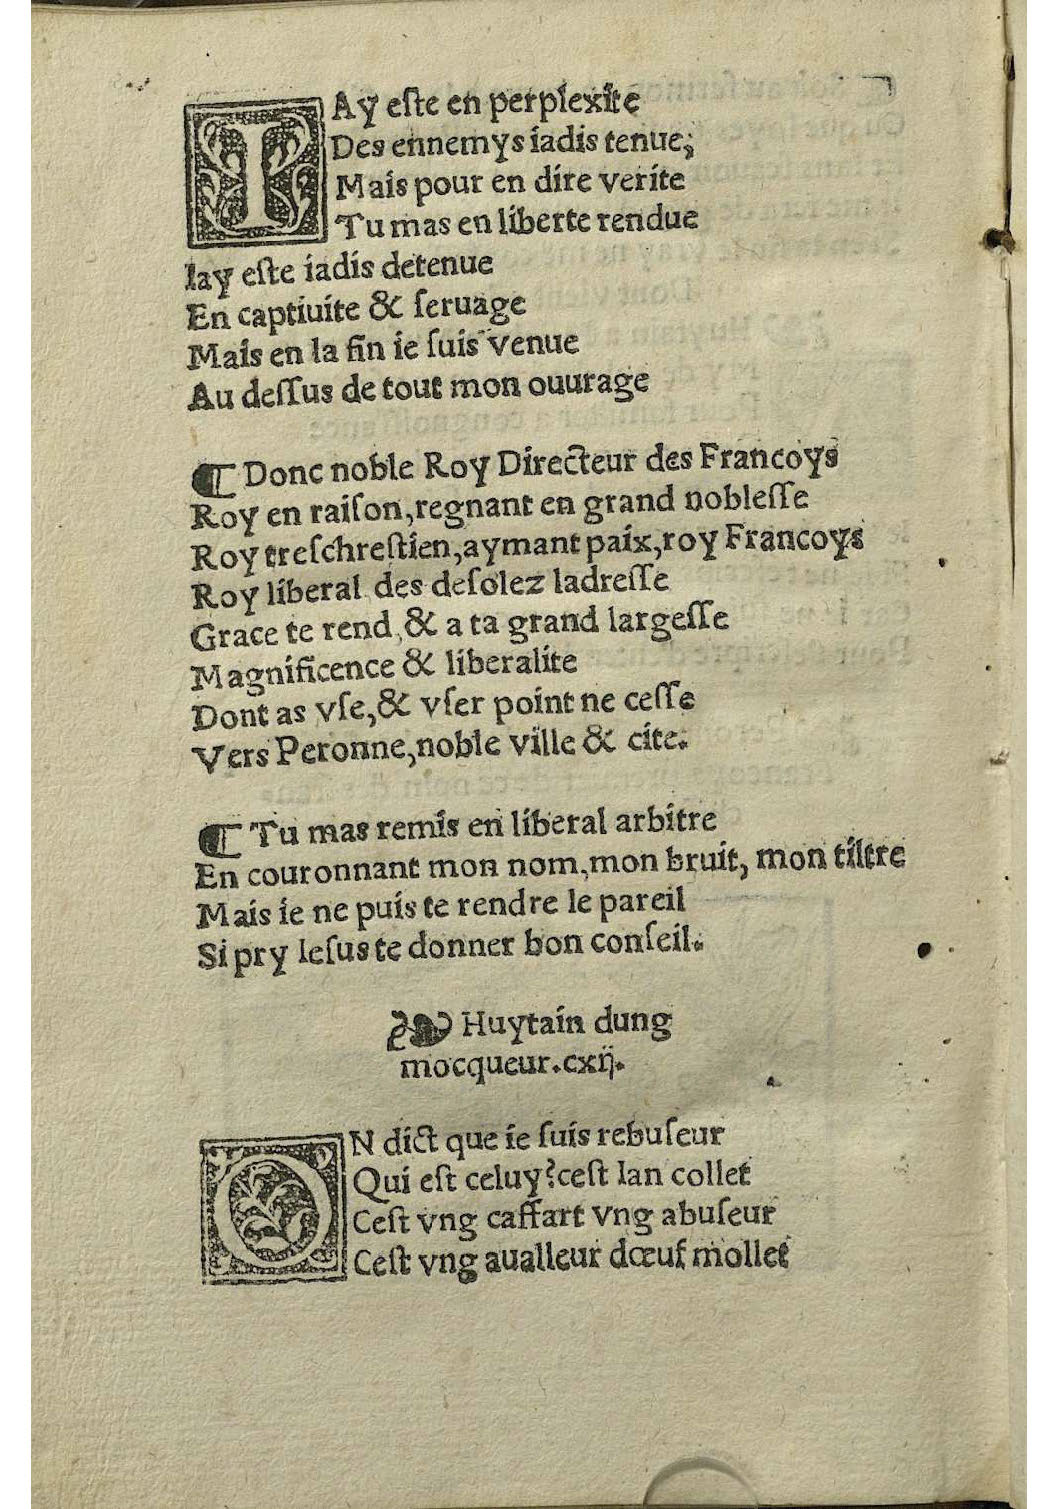 IAy este en perplexite
Des ennemys iadis tenue;
Mais pour en dire verite
Tu mas en liberte rendue
Iay este iadis detenue
En captiuite & ſeruage
Mais en la fin ie ſuis venue
Au deſſus de tout mon ouurage
¶ Donc noble Roy Directeur des Francoys
Roy en raiſon, regnant en grand nobleſſe
Roy treſchreſtien, aymant paix, roy Francoys
Roy liberal des deſolez ladreſſe
Grace te rend, & a ta grand largeſſe
Magnificence & liberalite
Dont as vſe, & vſer point ne ceſſe
Vers Peronne, noble ville & cite.
¶ Tu mas remis en liberal arbitre
En couronnant mon nom, mon bruit, mon tiltre
Mais ie ne puis te rendre le pareil
Si pry Ieſus te donner bon conſeil.
❧ Huytain dung
mocqueur. cxij.
ON dict que ie ſuis rebuſeur
Qui eſt celuy? ceſt Ian collet
Ceſt vng caffart vng abuſeur
Ceſt vng aualleur dœuf mollet